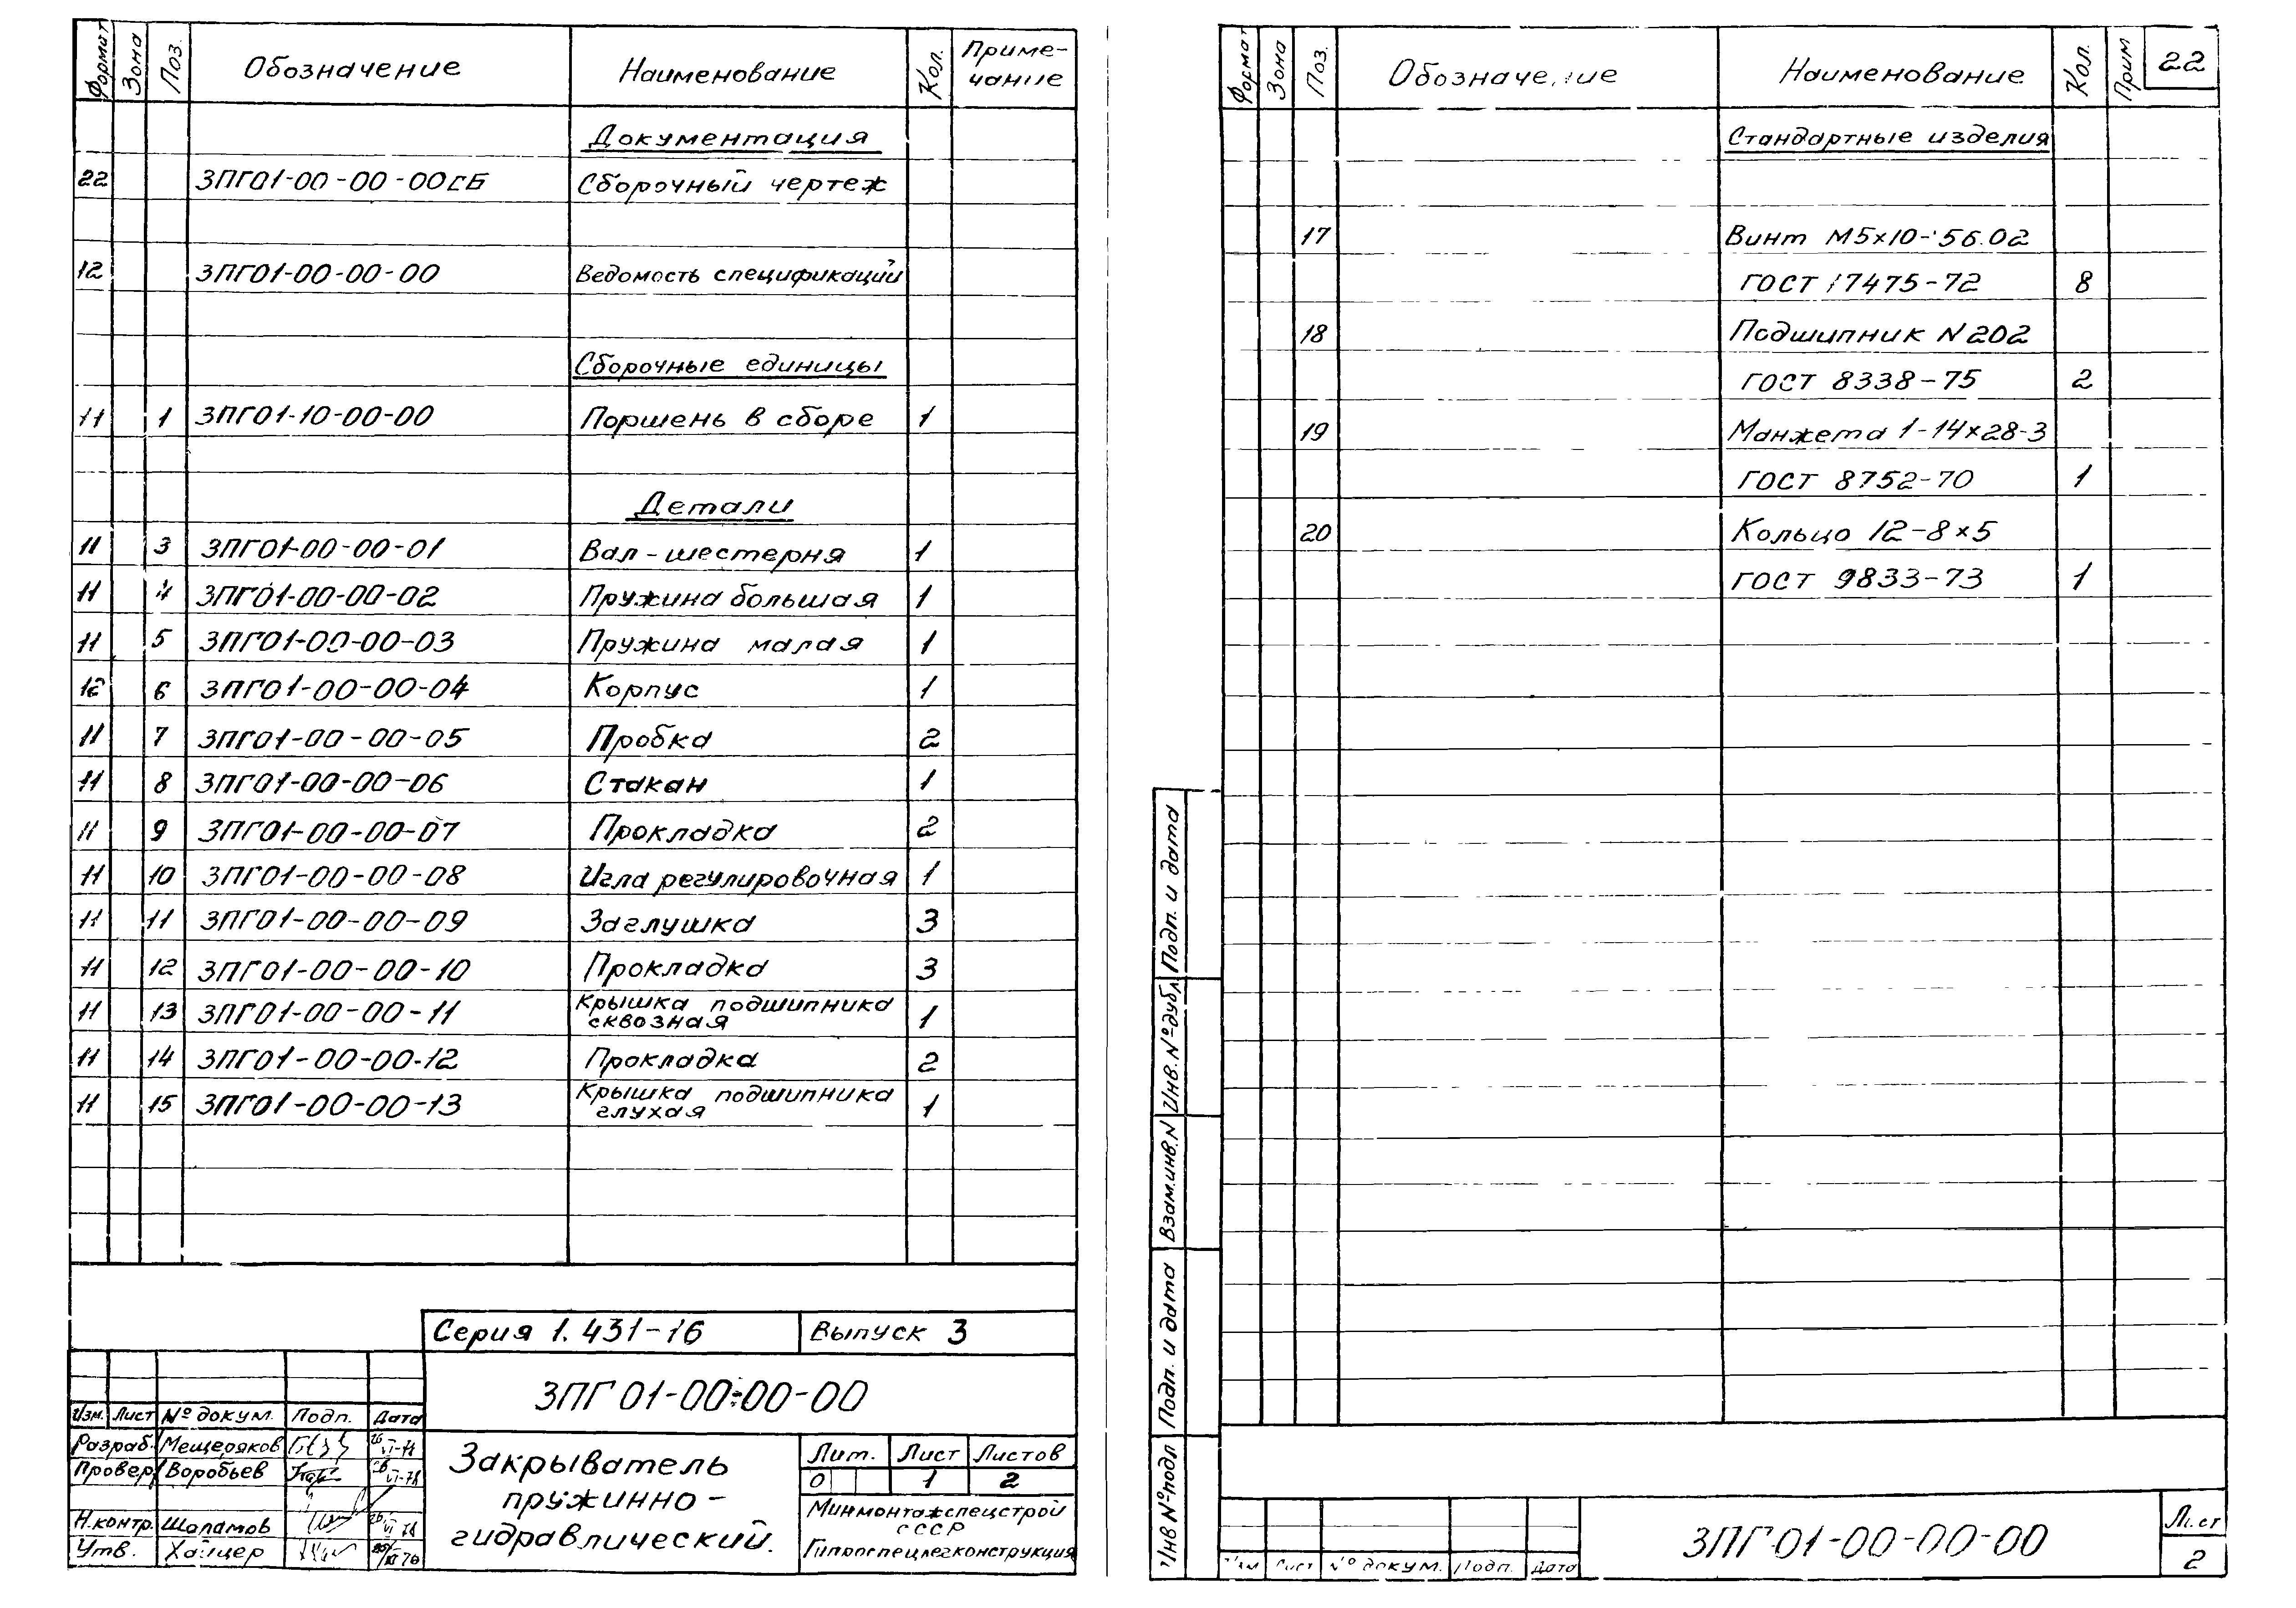 Формат Зона Поз. Обозначение Наименование Кол. Приме-
чание
Документация
22 ЗПГ01-00-00-00СБ Сборочный чертеж
12 ЗПГ01-00-00-00 Ведомость спецификаций
Сборочные единицы
11 1 ЗПГ01-10-00-00 Поршень в сборе 1
Детали
11 3 ЗПГ01-00-00-01 Вал-шестерня 1
11 4 ЗПГ01-00-00-02 Пружина большая 1
11 5 ЗПГ01-00-00-03 Пружина малая 1
12 6 ЗПГ01-00-00-04 Корпус 1
11 7 ЗПГ01-00-00-05 Пробка 2
11 8 ЗПГ01-00-00-06 Стакан 1
11 9 ЗПГ01-00-00-07 Прокладка 2
11 10 ЗПГ01-00-00-08 Игла регулировочная 1
11 11 ЗПГ01-00-00-09 Заглушка 3
11 12 ЗПГ01-00-00-10 Прокладка 3
11 13 ЗПГ01-00-00-11 Крышка подшипника 1
сквозная
11 14 ЗПГ01-00-00-12 Прокладка 2
11 15 ЗПГ01-00-00-13 Крышка подшипника 1
глухая
Серия 1.431-16 Выпуск 3
ЗПГ01-00-00-00
Изм. Лист № докум. Подп. Дата
Разраб. Мещеряков
Провер. Воробьев
Н.контр. Шаламов
Утв. Хайцер
Закрыватель
пружинно-
гидравлический.
Лит. Лист Листов
О 1 2
Минмонтажспецстрой
СССР
Гипроспецлегконструкция
Формат Зона Поз. Обозначение Наименование Кол. Прим 22
Стандартные изделия
17 Винт М5х10-56.02
ГОСТ 17475-72 8
18 Подшипник N202
ГОСТ 8338-75 2
19 Манжета 1-14х28-3
ГОСТ 8752-70 1
20 Кольцо 12-8х5
ГОСТ 9833-73 1
Подп. и дата
Инв. № дубл
Взам.инв.N
Подп. и дата
Инв № подл
Изм Лист № докум. Подп. Дата
ЗПГ-01-00-00-00
Лист
2